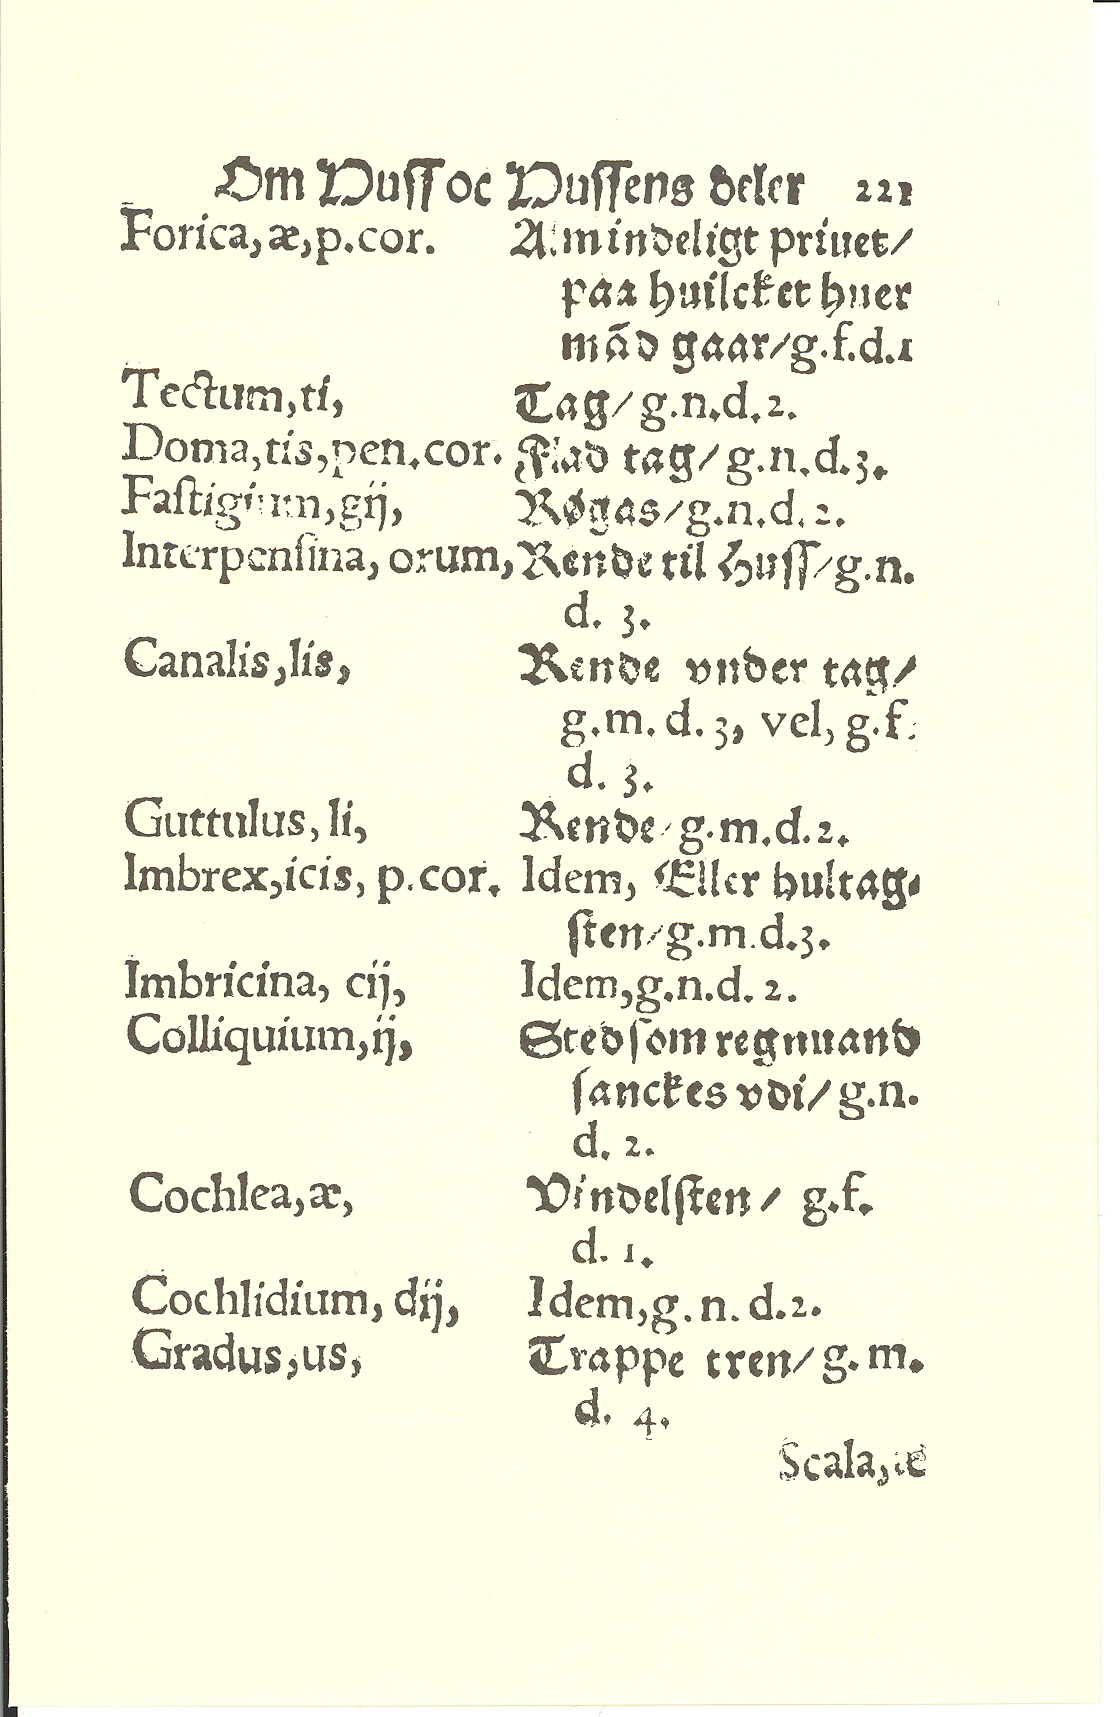 Om Huſſ oc Huſſens deler 221
Forica, æ, p.cor. Almindeligt priuet/
paa huilcket huer
mãd gaar/g.f.d.1
Tectum, ti, Tag/ g.n.d.2.
Doma, tis, pen.cor. Flad tag/ g.n.d.3.
Faſtigium, gij, Røgas/g.n.d.2.
Interpenſina, orum, Rende til Huſſ/g.n.
d. 3.
Canalis, lis, Rende vnder tag/
g.m.d.3, vel, g.f.
d. 3.
Guttulus, li, Rende/g.m.d.2.
Imbrex, icis, p.cor. Idem, Eller hultag-
ſten/g.m.d.3.
Imbricina, cij, Idem, g.n.d.2.
Colliquium, ij, Sted ſom regnuand
ſanckes vdi/ g.n.
d. 2.
Cochlea, æ, Vindelſten/ g.f.
d. 1.
Cochlidium, dij, Idem, g.n.d.2.
Gradus, us, Trappe tren/ g.m.
d. 4.
Scala, æ